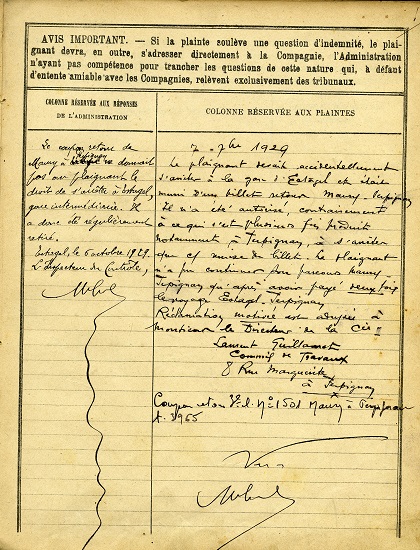 AVIS IMPORTANT. — Si la plainte soulève une question d'indemnité, le plai-
gnant devra, en outre, s'adresser directement à la Compagnie, l'Administration
n'ayant pas compétence pour trancher les questions de cette nature qui, à défaut
d'entente amiable avec les Compagnies, relèvent exclusivement des tribunaux.
COLONNE RÉSERVÉE AUX RÉPONSES
DE L'ADMINISTRATION
Le coupon retour de
Perpignan
Maury à donnait
pas au plaignant le
droit de s'arrêter à Estagel,
gare intermédiaire. Il
a donc été régulièrement
retiré.
Estagel, le 6 octobre 1929.
L'Inspecteur du Contrôle,
COLONNE RÉSERVÉE AUX PLAINTES
7 - 7bre 1929
Le plaignant devait accidentellement
s'arrêter à la gare d'Estagel et était
muni d'un billet retour Maury - Perpignan
Il n'a été autorisé, contrairement
à ce qui s'est plusieurs fois produit
notamment à Perpignan, à s'arrêter
que muni de billet. Le plaignant
n'a pu continuer son parcours Maury -
Perpignan qu'après avoir payé deux fois
le voyage Estagel - Perpignan
Réclamation motivée est adressée à
monsieur le Directeur de la Cie
Laurent Guillamet
Commis de Travaux
8 Rue Marguerite
à Perpignan
Coupon retour N° 1501 Maury à Perpignan